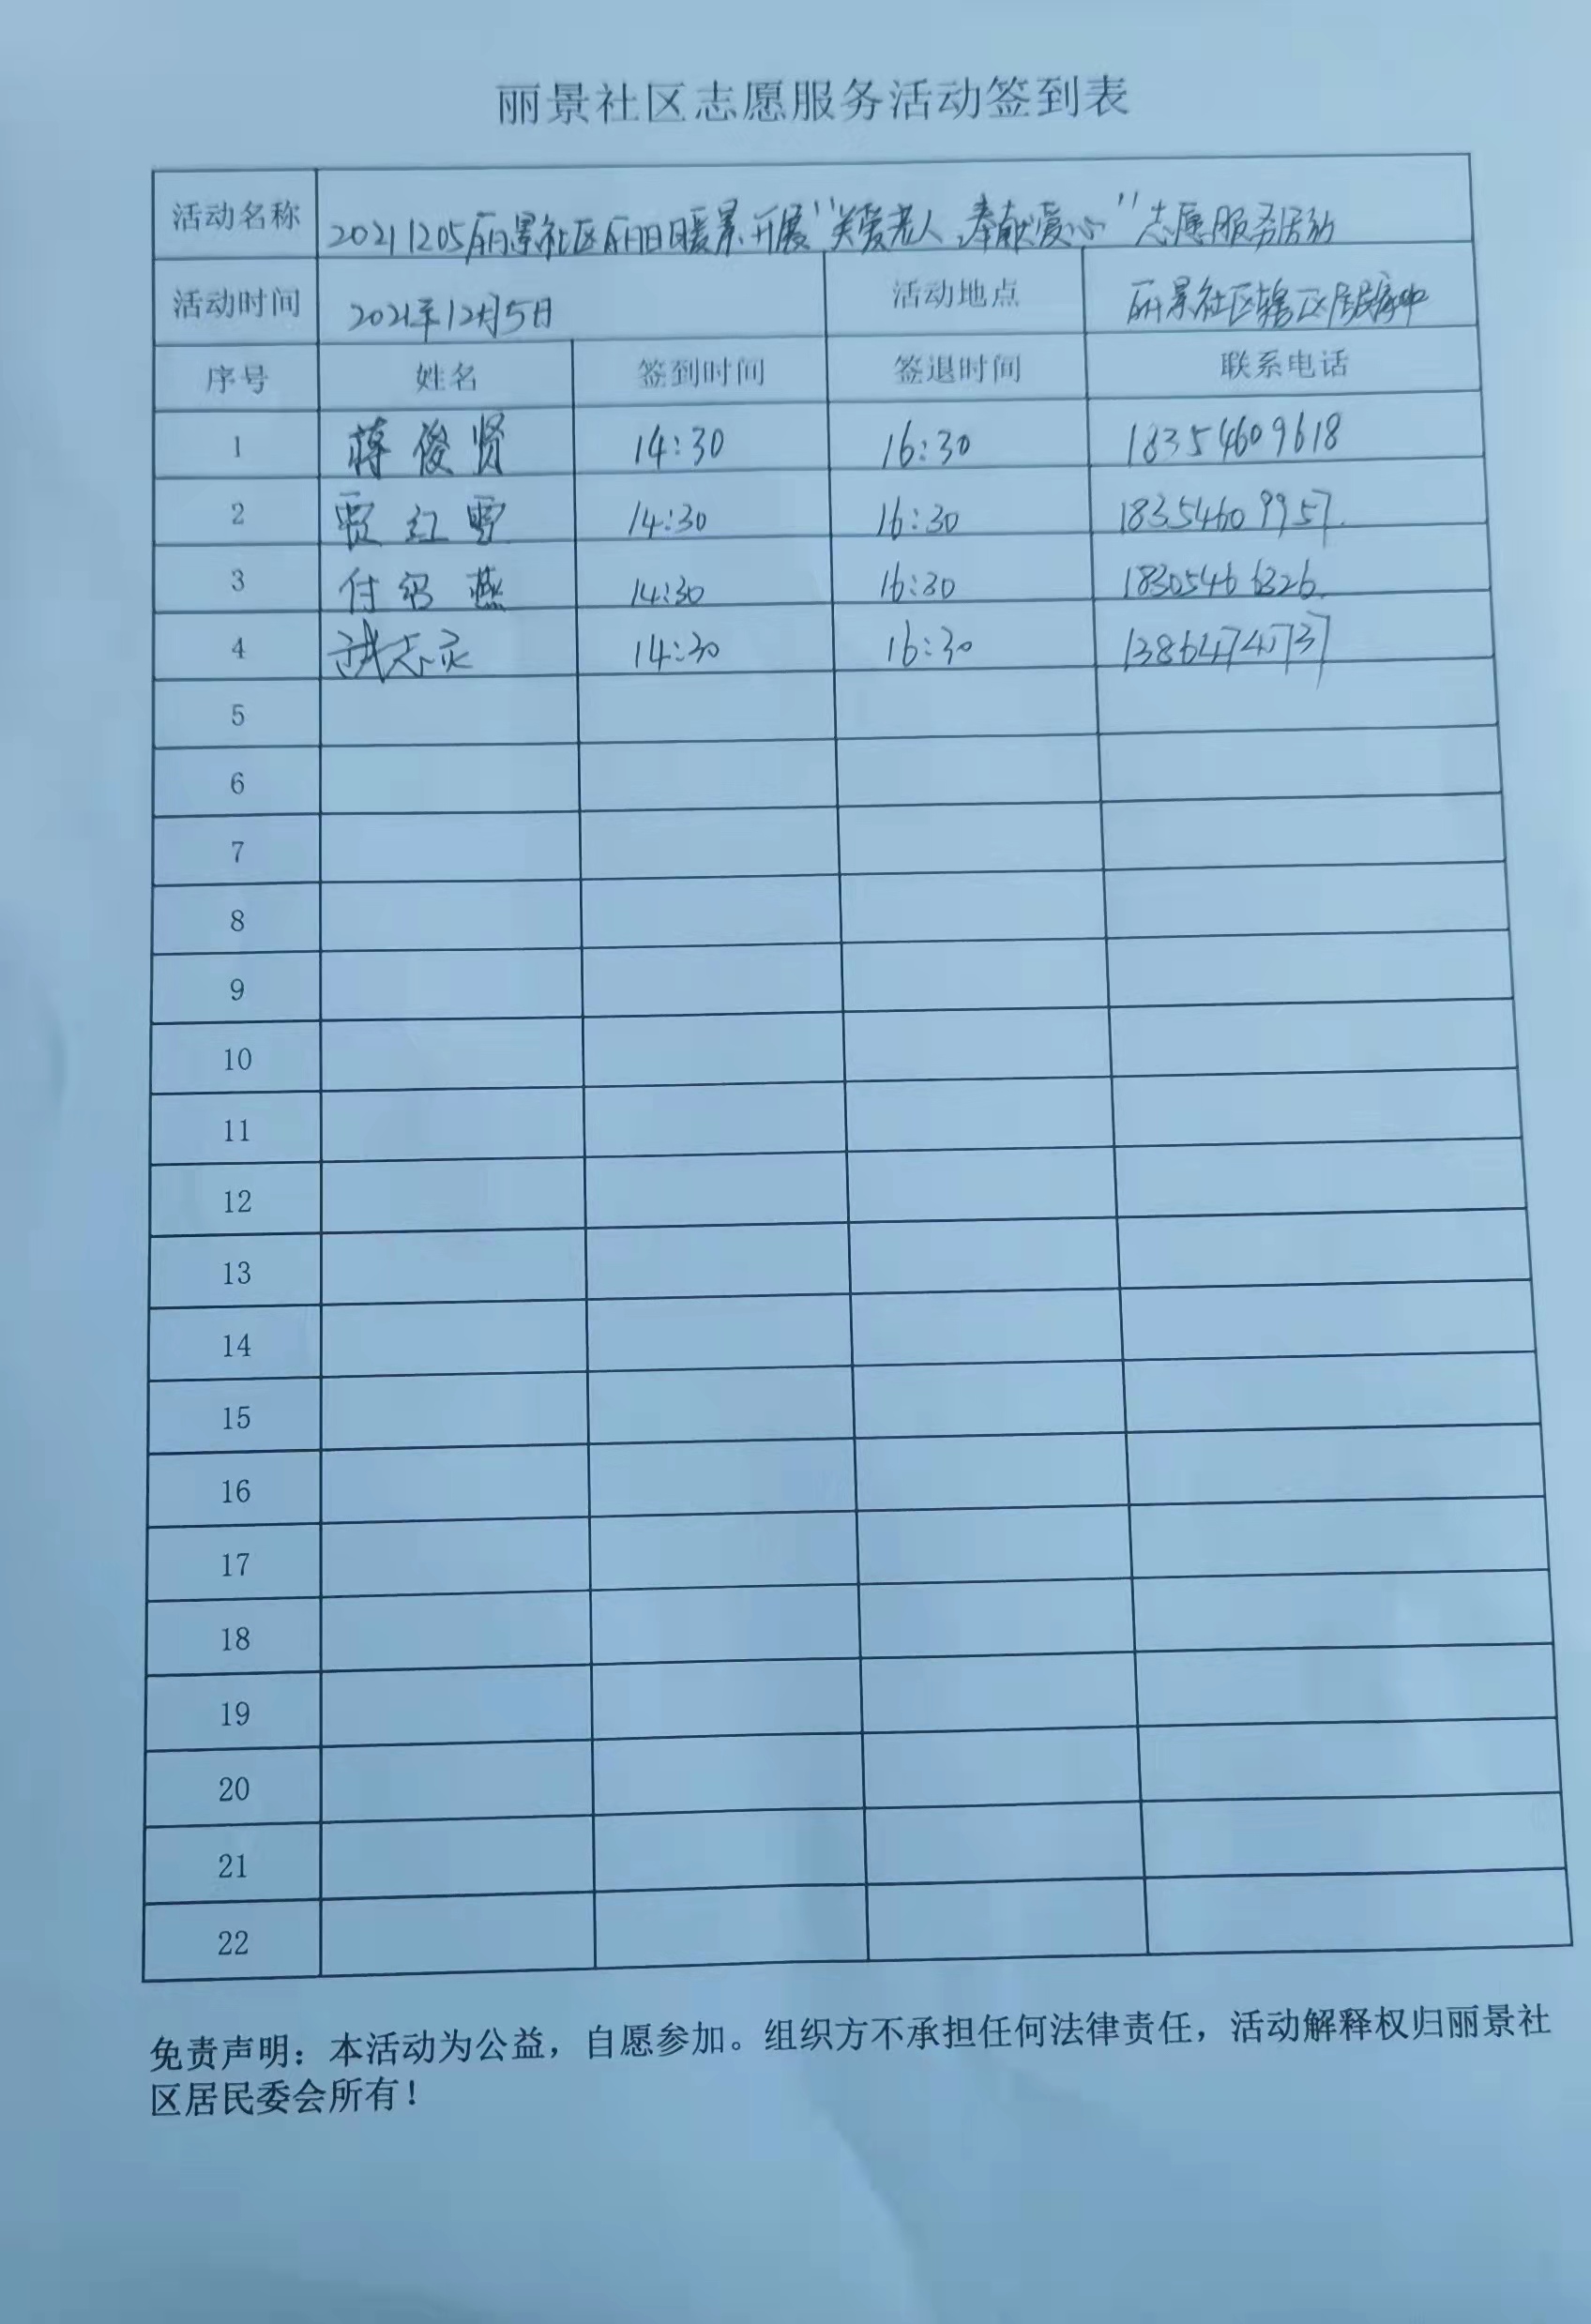 丽景社区志愿服务活动签到表
活动名称 20211205丽景社区丽日暖景开展“关爱老人、奉献爱心”志愿服务活动
活动时间 2021年12月5日 活动地点 丽景社区辖区居民家中
序号 姓名 签到时间 签退时间 联系电话
1 蒋俊贤 14:30 16:30 18354609618
2 贾红雪 14:30 16:30 18354609957
3 付 燕 14:30 16:30 18305466326
4 14:30 16:30 13864747737
5
6
7
8
9
10
11
12
13
14
15
16
17
18
19
20
21
22
免责声明：本活动为公益，自愿参加。组织方不承担任何法律责任，活动解释权归丽景社
区居民委会所有！